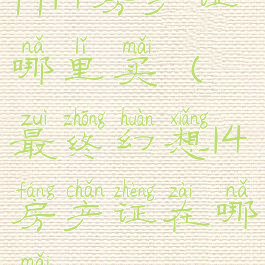 ff14房产证
nǎ lǐ mǎi
哪里买（
zuì zhōng huàn xiǎng
最终幻想14
fáng chǎn zhèng zài nǎ
房产证在哪
mǎi